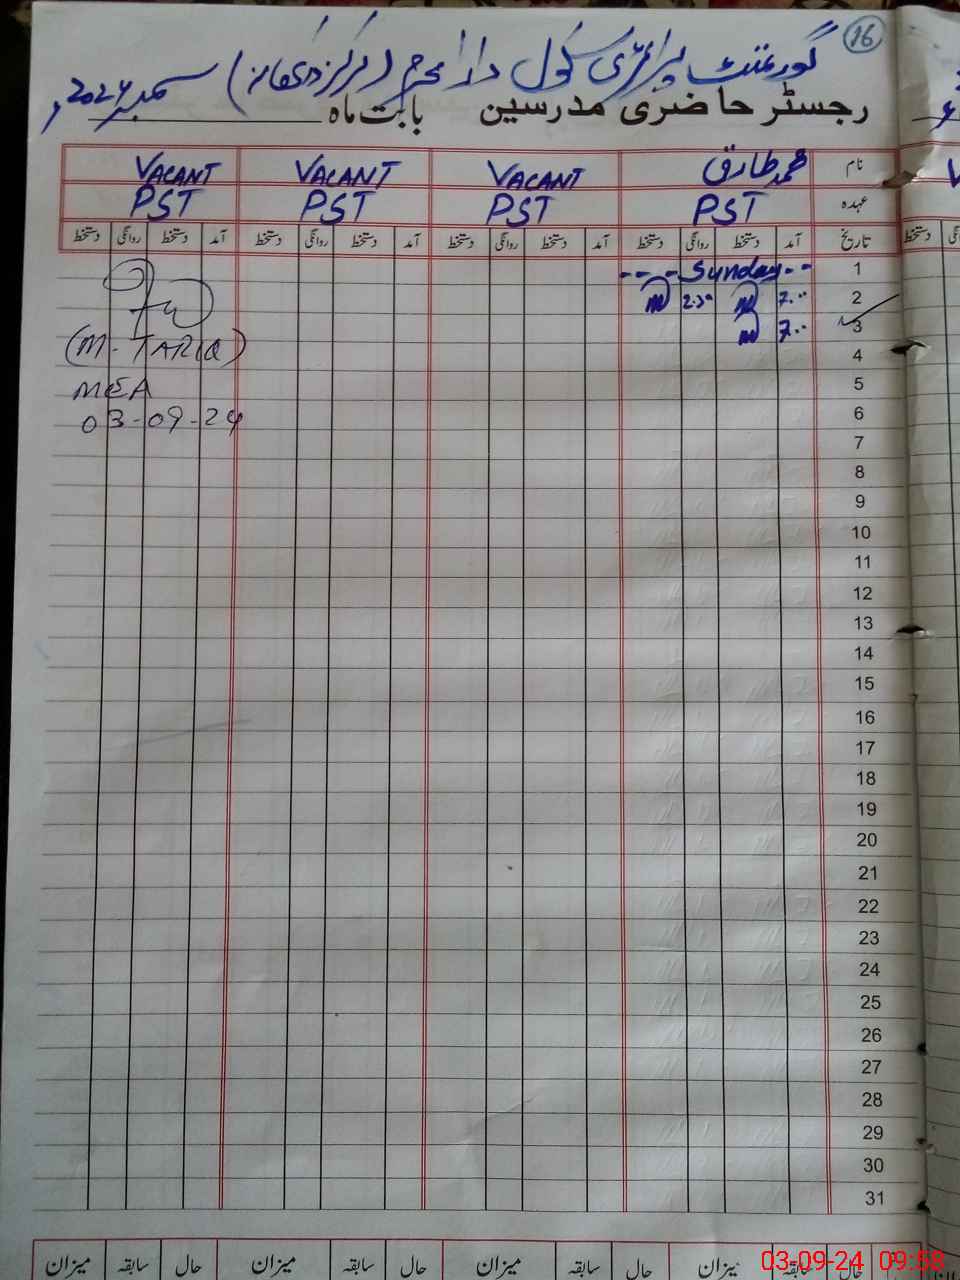 16
گورنمنٹ پرائمری سکول دارا محرم (مرکز ) ستمبر 2024ء
رجسٹر حاضری مدرسین بابت ماہ
نام محمد طارق VACANT VACANT VACANT
عہدہ PST PST PST PST
تاریخ آمد دستخط روانگی دستخط آمد دستخط روانگی دستخط آمد دستخط روانگی دستخط آمد دستخط روانگی دستخط
1 -- Sunday ---
2 7.00 2.30
3 7.00
4 (M. TARIQ)
5 MEA
6 03-09-24
7
8
9
10
11
12
13
14
15
16
17
18
19
20
21
22
23
24
25
26
27
28
29
30
31
حال سابقہ میزان حال سابقہ میزان حال سابقہ میزان حال سابقہ میزان
03-09-24 09:58